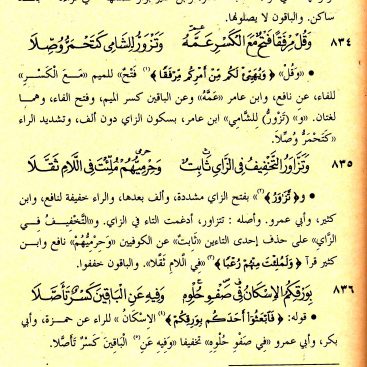 ساكن. والباقون لا يصلونها.
٨٣٤ وَقُلْ مِرْفَقًا فَتْحٌ مَعَ الْكَسْرِ عَمَّهُ وَتَزْوَرُّ لِلشَّامِي كَتَحْمَرُّ وُصِّلَا
• «وَقُلْ» ﴿ وَيُهَيِّئْ لَكُمْ مِنْ أَمْرِكُمْ مِرْفَقًا ﴾(١) «فَتْحٌ» للميم «مَعَ الْكَسْرِ»
للفاء، عن نافع، وابن عامر «عَمَّهُ» وعن الباقين كسر الميم، وفتح الفاء، وهما
لغتان. «و» (تَزْوَرُّ لِلشَّامِي) ابن عامر، بسكون الزاي دون ألف، وتشديد الراء
«كَتَحْمَرُّ وُصِّلَا.
٨٣٥ وَتَزَّاوَرُ التَّخْفِيفُ فِي الزَّايِ ثَابِتٌ وَحِرْمِيُّهُمْ مُلِّئْتَ فِي اللَّامِ ثَقَّلَا
• و﴿ تَزَّاوَرُ ﴾(٢) بفتح الزاي مشددة، وألف بعدها، والراء خفيفة لنافع، وابن
كثير، وأبي عمرو. وأصله : تتزاور، أدغمت التاء في الزاي. و«التَّخْفِيفُ فِي
الزَّاي» على حذف إحدى التاءين «ثَابِتٌ» عن الكوفيين «وَحِرْمِيُّهُمْ» نافع وابن
كثير قرآ ﴿ وَلَمُلِّئْتَ مِنْهُمْ رُعْبًا ﴾(٣) «فِي اللَّامِ ثَقَّلَا». والباقون خففوا.
٨٣٦ بِوَرْقِكُمُ الْإِسْكَانُ فِي صَفْوِ حُلْوِهِ وَفِيهِ عَنِ الْبَاقِينَ كَسْرٌ تَأَصَّلَا
• قوله: ﴿ فَابْعَثُوا أَحَدَكُمْ بِوَرِقِكُمْ ﴾(٤) الْإِسْكَانُ» للراء عن حمزة، وأبي
بكر، وأبي عمرو «فِي صَفْوِ حُلْوِهِ» تخفيفا «وَفِيهِ عَنِ(٥) الْبَاقِينَ كَسْرٌ تَأَصَّلَا.